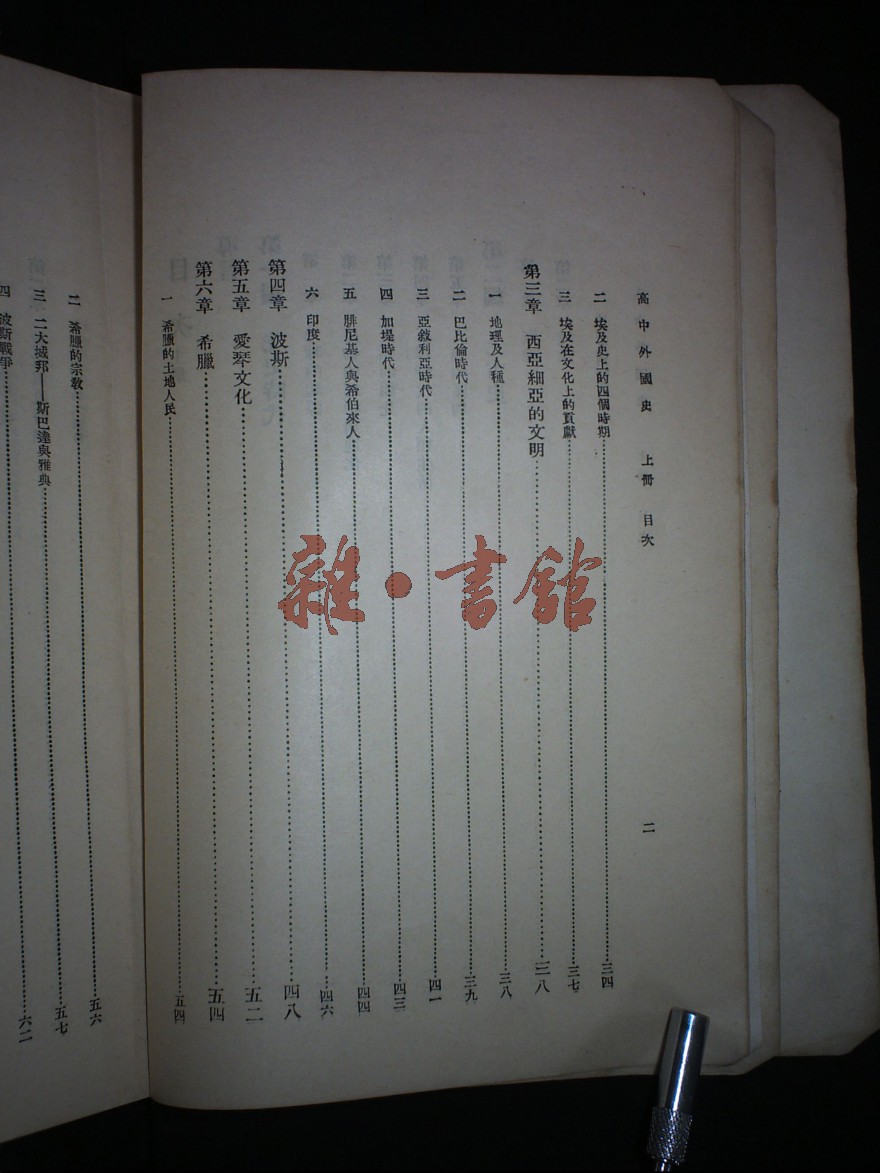 高中外國史　上冊　目次　二
二　埃及史上的四個時期……三四
三　埃及在文化上的貢獻……三七
第三章　西亞細亞的文明……三八
一　地理及人種……三八
二　巴比倫時代……三九
三　亞敘利亞時代……四一
四　加堤時代……四三
五　腓尼基人與希伯來人……四四
六　印度……四六
第四章　波斯……四八
第五章　愛琴文化……五二
第六章　希臘……五四
一　希臘的土地人民……五四
二　希臘的宗教……五六
三　二大城邦——斯巴達與雅典……五七
四　波斯戰爭……六二
雜·書館